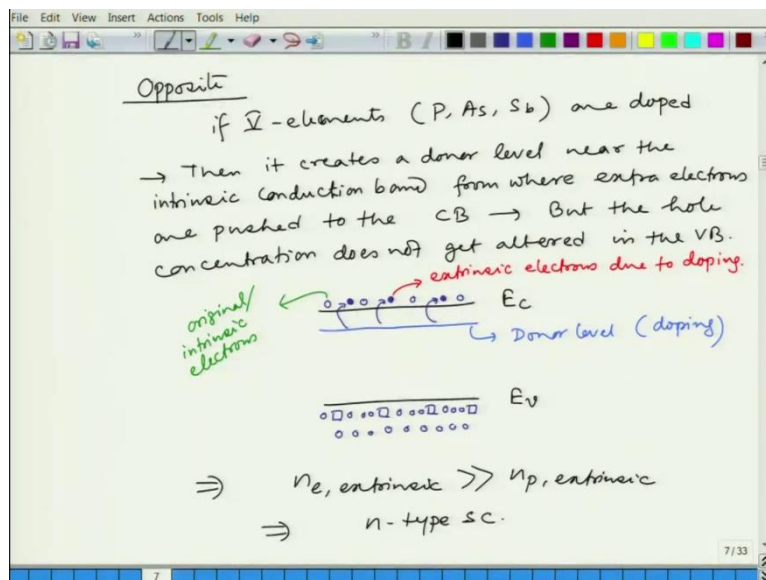 File Edit View Insert Actions Tools Help
Opposite
if V-elements (P, As, Sb) are doped
→ Then it creates a donor level near the
intrinsic conduction band from where extra electrons
are pushed to the CB → But the hole
concentration does not get altered in the VB.
extrinsic electrons due to doping.
original/
intrinsic
electrons
Ec
Donor level (doping)
Ev
⇒ ne, extrinsic >> np, extrinsic
⇒ n-type sc.
7/33
7